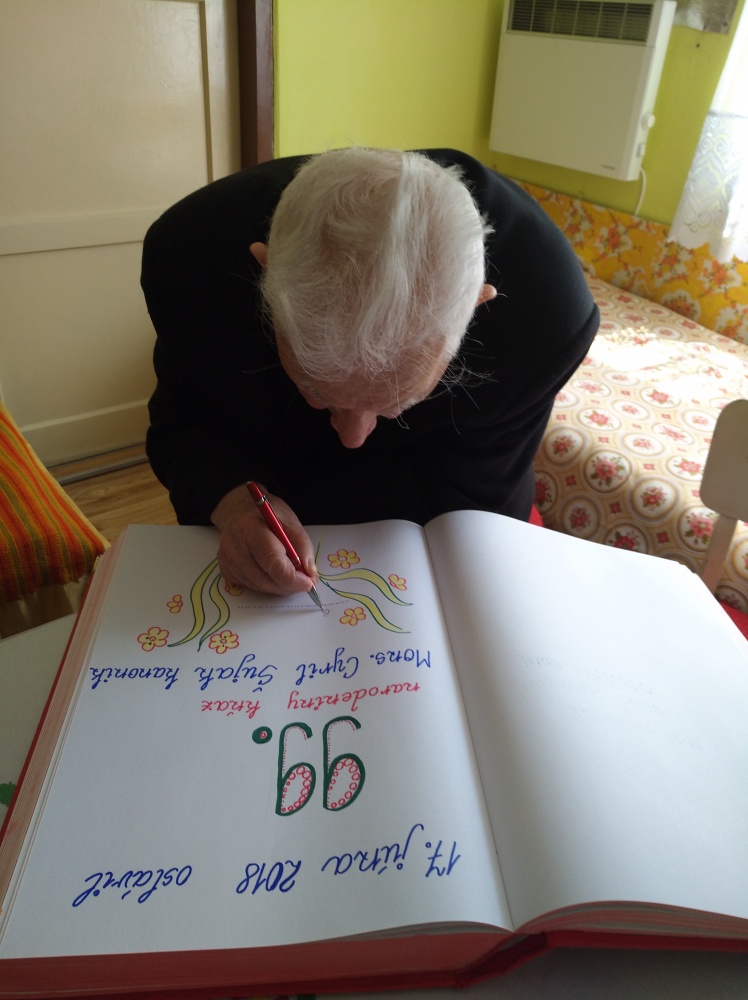 17. júna 2018 oslávil
99.
narodeniny kňaz
Mons. Cyril Šujak kanonik